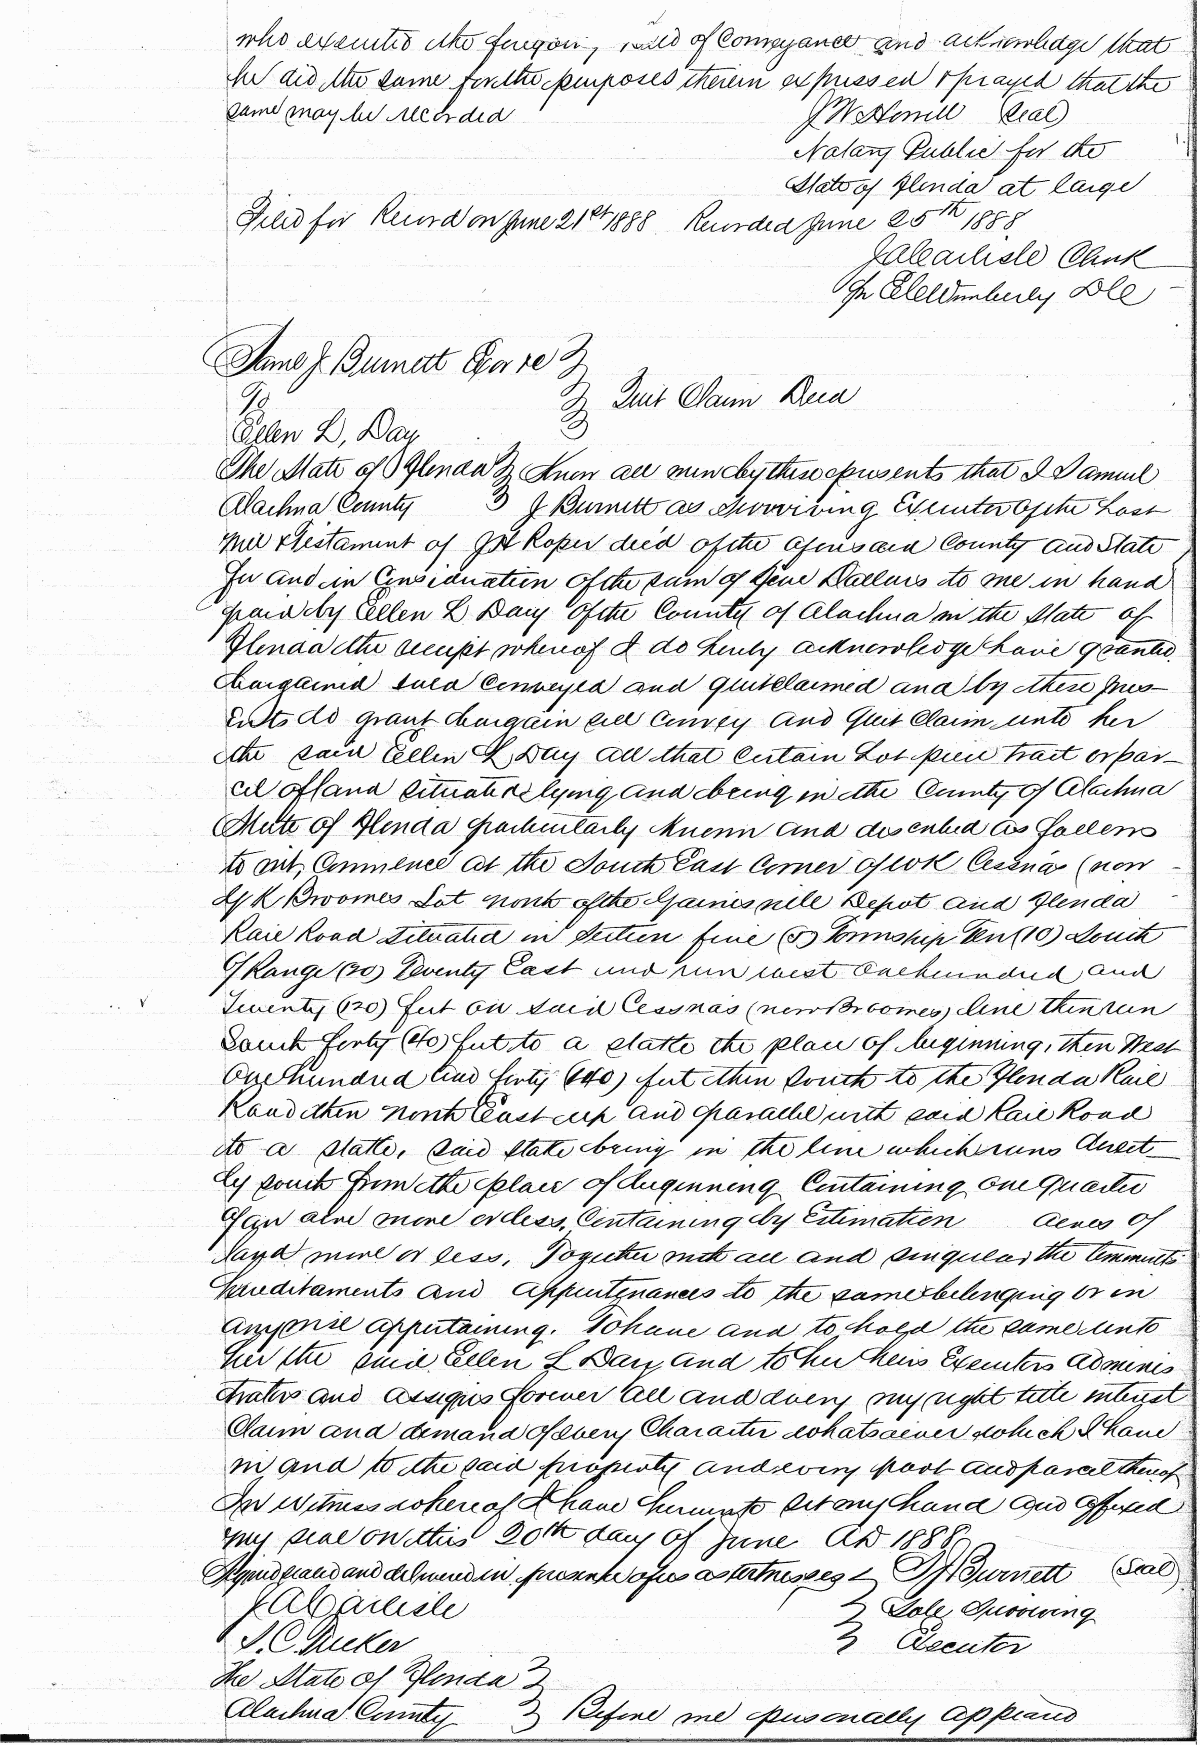 who executed the foregoing deed of Conveyance and acknowledge that
he did the same for the purposes therein expressed & prayed that the
same may be recorded
J W Howill (Seal)
Notary Public for the
State of Florida at large
Filed for Record on June 21st 1888 Recorded June 25th 1888
J A Carlisle Clerk
Pr E C Wimberly DC
Saml J. Burnett Exor re
To
Quit Claim Deed
Ellen L, Day
The State of Florida Know all men by these presents that I Samuel
Alachua County J Burnett as Surviving Executor of the Last
Will & Testament of J H Roper dec'd of the aforesaid County and State
For and in Consideration of the sum of five Dollars to me in hand
paid by Ellen L Day of the County of Alachua in the State of
Florida the receipt whereof I do hereby acknowledge have granted
bargained sold Conveyed and quitclaimed and by these pres-
ents do grant bargain sell Convey and Quit Claim unto her
the said Ellen L Day all that certain Lot piece tract or par-
cel of land situate lying and being in the County of Alachua
State of Florida particularly known and described as follows
to wit, Commence at the South East Corner of W K Cessnas (now
G K Broomes Lot north of the Gainesville Depot and Florida
Rail Road situated in Section five (5) Township Ten (10) South
of Range (20) Twenty East and run west one hundred and
Twenty (120) feet on said Cessnas (now Broomes) line then run
South forty (40) feet to a stake the place of beginning, then West
One hundred and forty (140) feet then South to the Florida Rail
Road then North East up and parallel with said Rail Road
to a stake, said stake being in the line which runs direct
ly south from the place of beginning Containing one quarter
of an acre more or less, Containing by Estimation acres of
land more or less, Together with all and singular the tenements
hereditaments and appurtenances to the same belonging or in
anywise appertaining. To have and to hold the same unto
her the said Ellen L Day and to her heirs Executors adminis
trators and assigns forever all and every my right title interest
Claim and demand of every Character whatsoever which I have
in and to the said property and every part and parcel thereof
In Witness whereof I have hereunto set my hand and affixed
my seal on this 20th day of June AD 1888
Signed sealed and delivered in presence of us as witnesses S J Burnett (Seal)
J A Carlisle Sole Surviving
S. C. Tucker Executor
The State of Florida
Alachua County Before me personally appeared